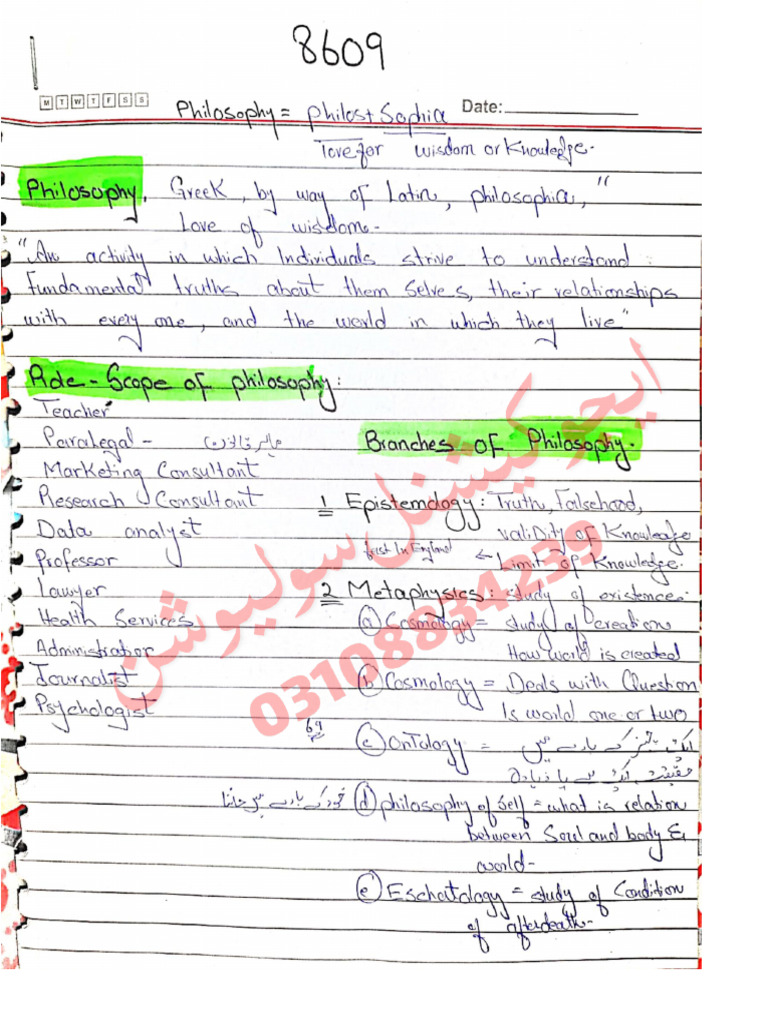 8609
M T W T F S S
Philosophy = Philos+Sophia Date:
Love for wisdom or Knowledge.
Philosophy. Greek, by way of Latin, philosophia, "
Love of wisdom.
"An activity in which Individuals strive to understand
Fundamental truths about them selves, their relationships
with every one, and the world in which they live"
Scope of philosophy:
Teacher
Paralegal -
Marketing Consultant
Research Consultant
Data analyst
Professor
Lawyer
Health Services
Administrator
Journalist
Psychologist
Branches of Philosophy.
1 Epistemology: Truth, Falsehood,
valiDity of Knowledge
first In England ← Limit of Knowledge.
2 Metaphysics: study of existence.
(a) Cosmology = study of creation
How world is created
(b) Cosmology = Deals with Question
Is world one or two
69
(c) OnTology =
(d) philosophy of Self = what is relation
between Soul and body &
world-
(e) Eschatology = study of Condition
of afterdeath.
ایجوکیشنل سولیوشن
03108834239